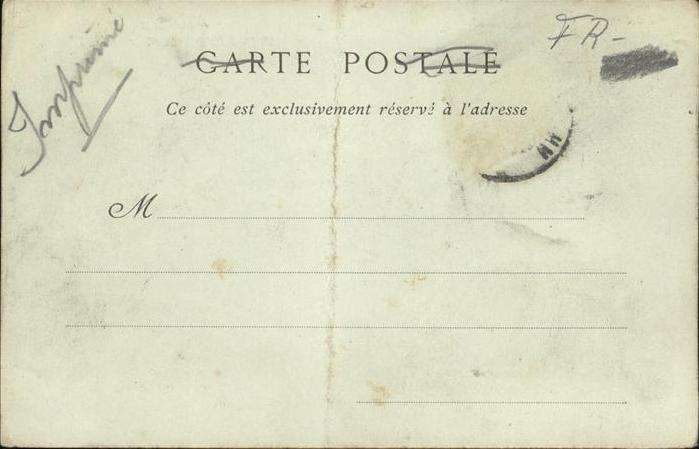 Imprimé
FR-
CARTE POSTALE
Ce côté est exclusivement réservé à l'adresse
M